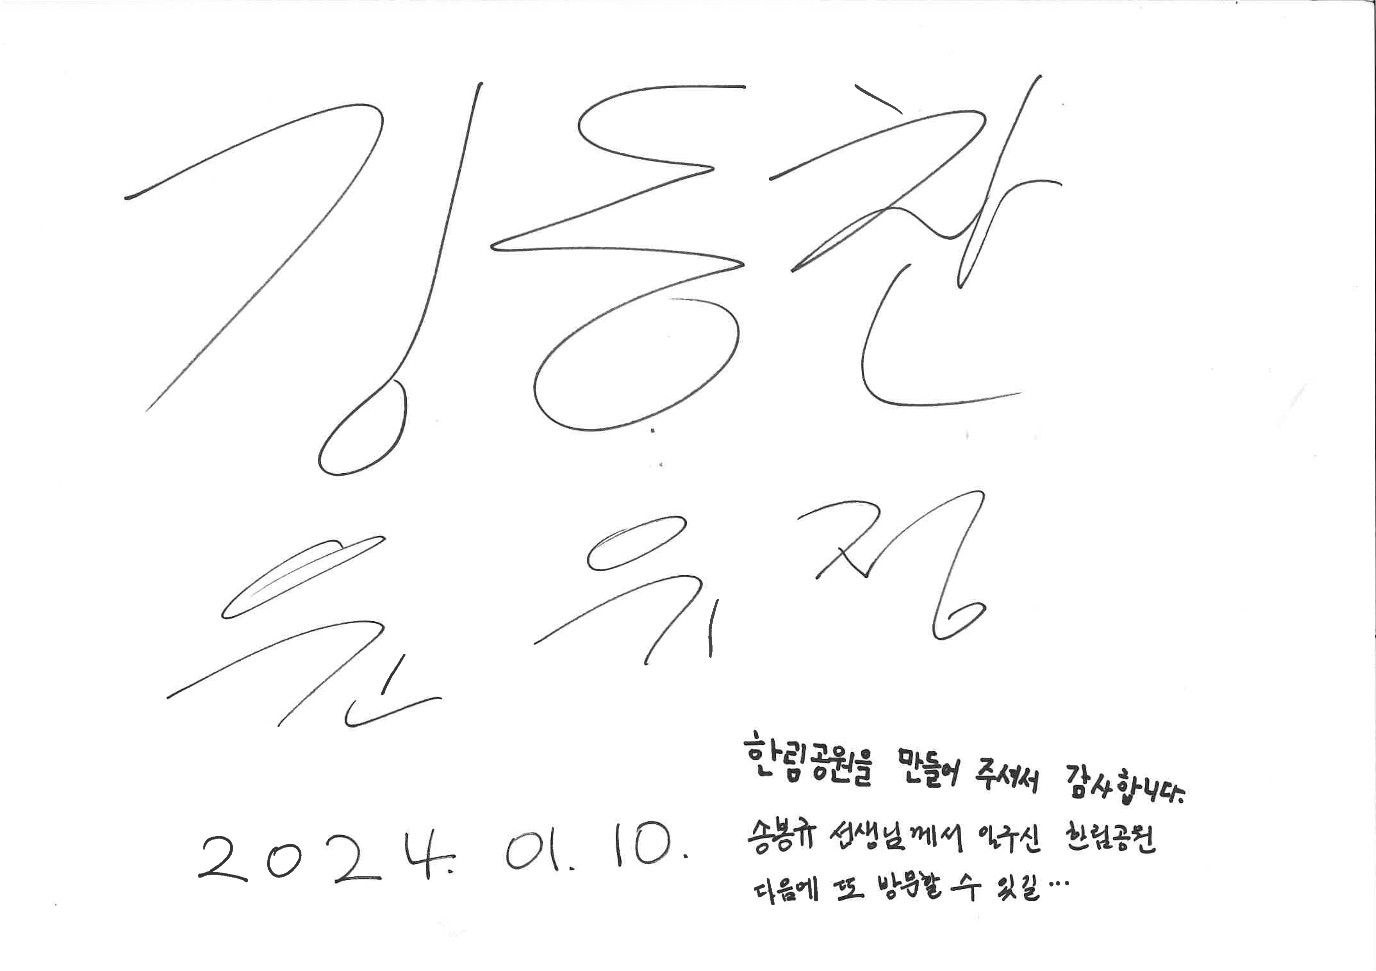 김동찬
윤유정
2024. 01. 10.
한림공원을 만들어 주셔서 감사합니다.
송봉규 선생님께서 일구신 한림공원
다음에 또 방문할 수 있길...